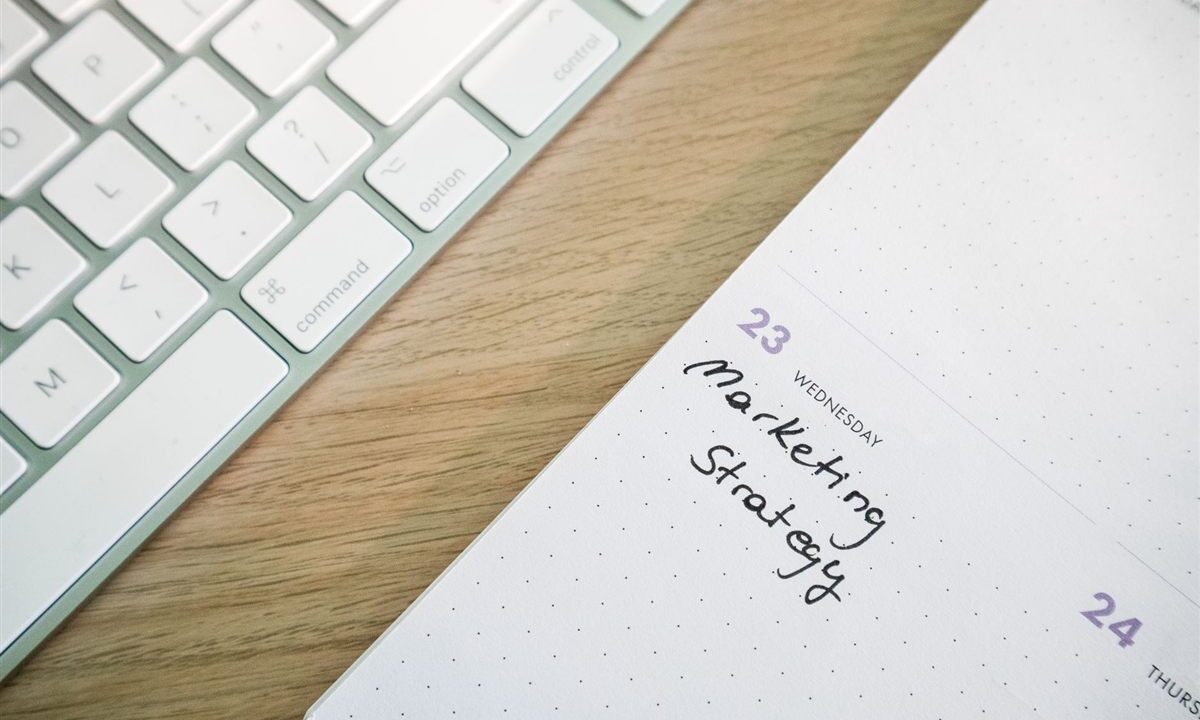 P
O
? /
control
L
>
.
option
K
<
,
command
M
23
WEDNESDAY
Marketing
Strategy
24
THURS